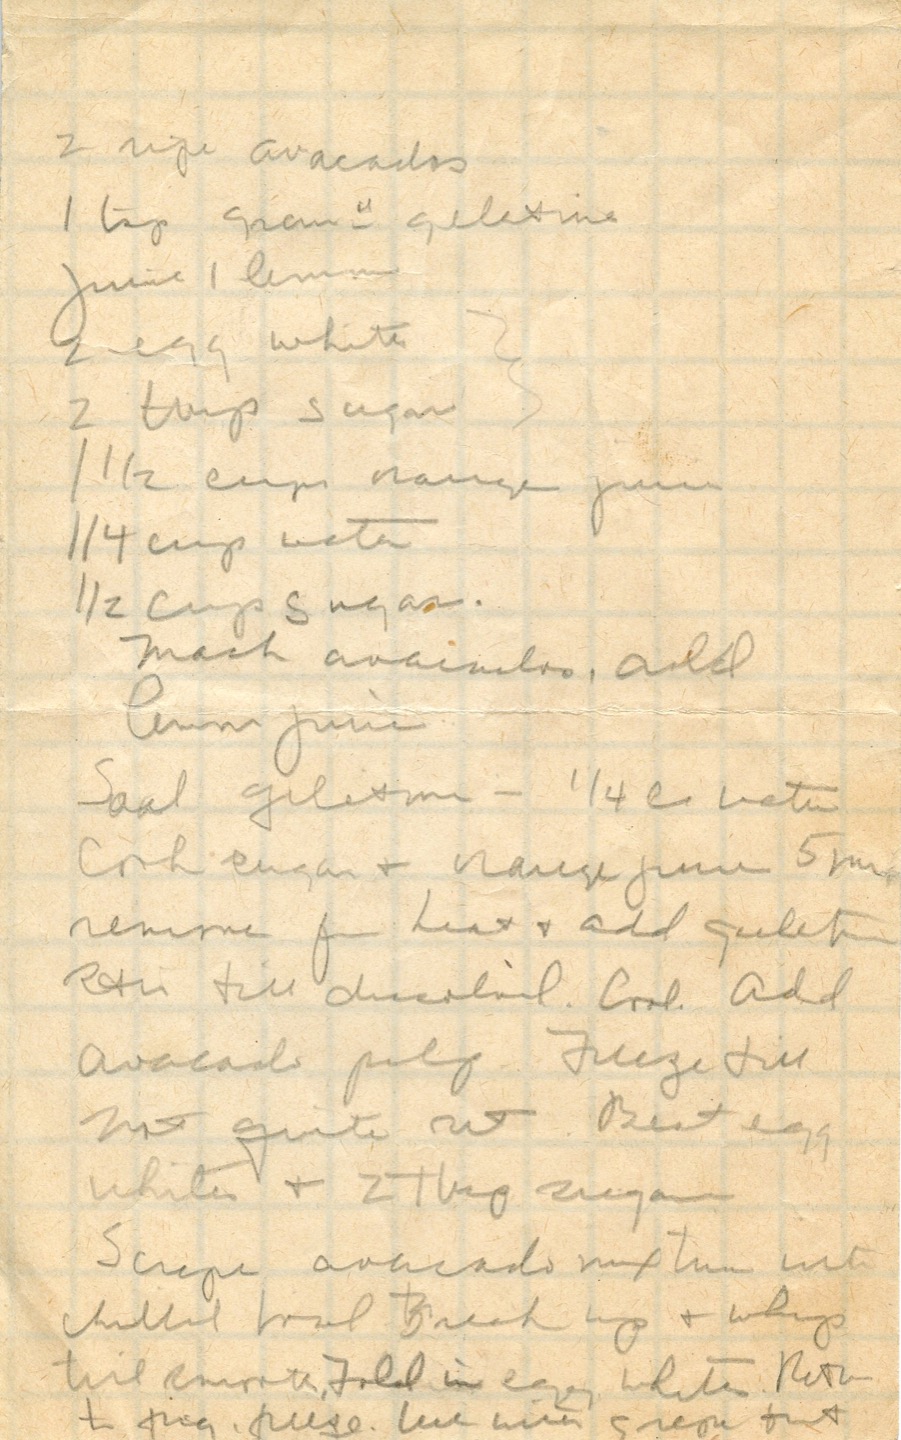 2 ripe avacados
1 tsp gran" geletine
Juice 1 lemon
2 egg whites
2 tbsp sugar
1 1/2 cups orange juice
1/4 cup water
1/2 cup sugar.
Mash avacados, add
lemon juice
Soak geletine - 1/4 c water
Cook sugar + orange juice 5 min
remove fr heat + add geletin
Stir till dissolved. Cool. Add
avacado pulp Freeze till
not quite set. Beat egg
whites + 2 Tbsp sugar
Scrape avacado mixture into
chilled bowl Break up + whip
till smooth, Fold in egg whites. Return
to frig. freeze. with grapefruit